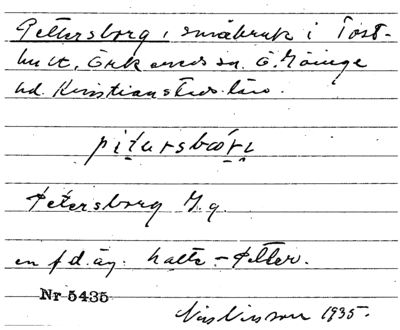 Pettersborg, småbruk i Tost-
hult, Örkeneds sn. Ö. Göinge
hd. Kristianstads län.
pitarsbɷrj
Petersborg J.q.
en f.d. äg. hatte - Petter.
Nr 5435
Nils Nilsson 1935.